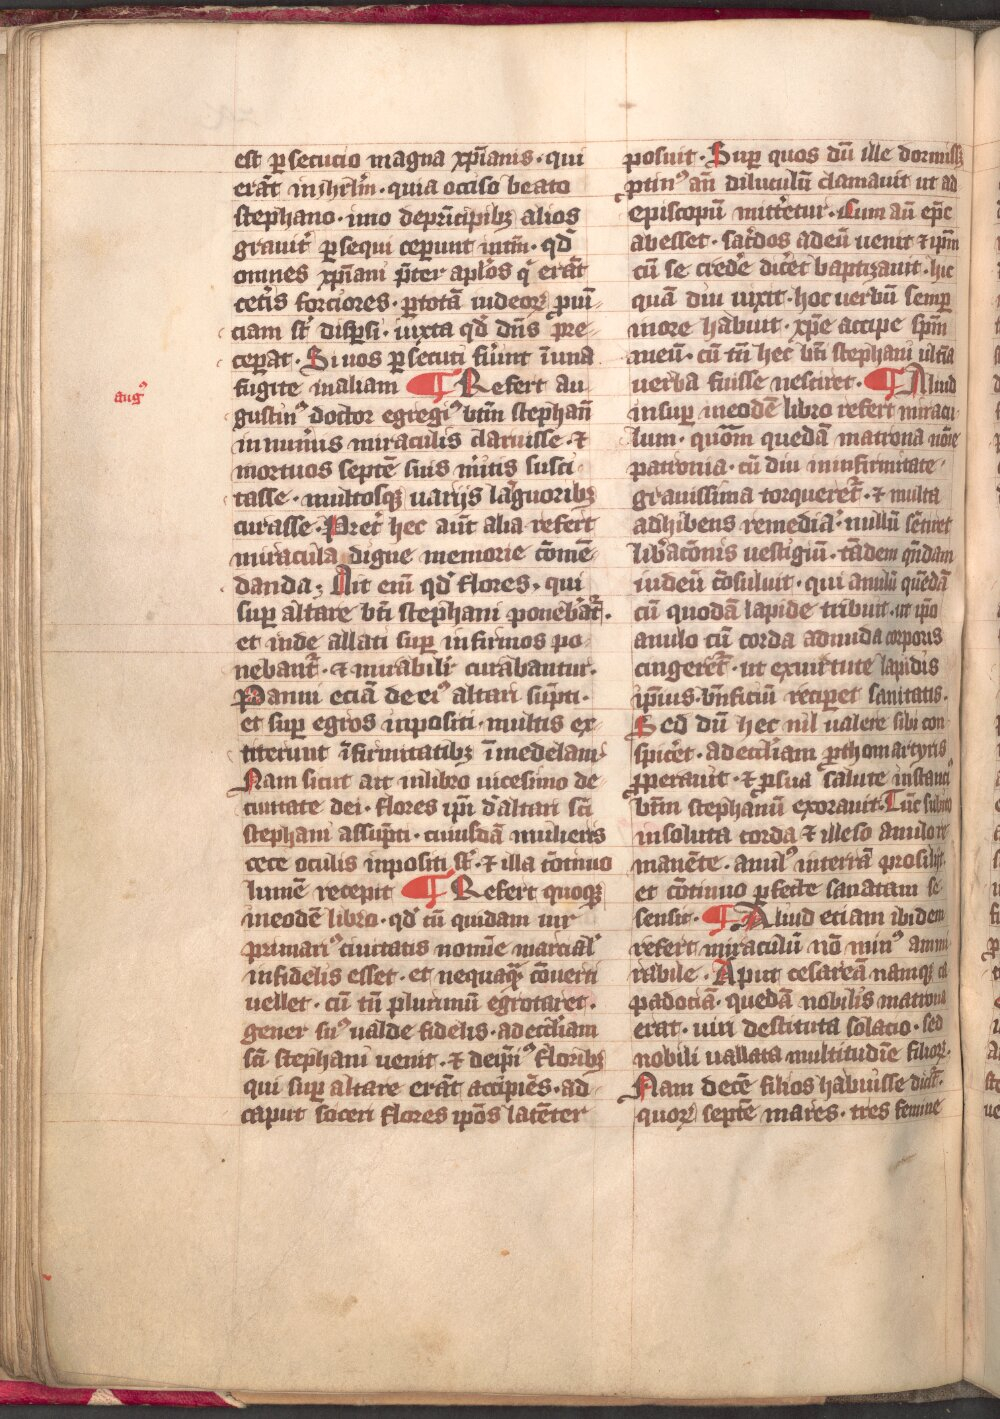 aug⁹
est ꝑsecucio magna xp̄ianis · qui
erāt in iherl̄m · quia occiso beato
stephano · imo deprīcipibꝫ alios
grauit̾ ꝑsequi ceperunt intm̄ · qd̄
omnes xp̄iani p̄ter apl̄os q̄ erāt
cet̾is forciores · ꝑ totā iudeoꝝ ꝓuī-
ciam st̄ disꝑsi · iuxta qd̄ dn̄s pre-
ceperat · Si uos ꝑsecuti fūint ī una
fugite in aliam ¶ Refert au
gustin⁹ doctor egregi⁹ btm̄ stephan̄
innumīs miraculis claruisse · ⁊
mortuos septē suis mītis susci
tasse · multosqꝫ uarijs lāguoribꝫ
curasse · Pret̾ hec aūt alia refert
miracula digne memorie cōmē-
danda ; Ait enī qd̄ flores · qui
suꝑ altare bt̄i stephani ponebāt̾ ·
et inde allati suꝑ infirmos po
nebant̾ · ⁊ mirabilit̾ curabantur ·
Panni eciā de ei⁹ altari sūpti ·
et suꝑ egros inpositi · multis ex-
titerunt īfirmitatibꝫ ī medelam
Nam sicut ait in libro uicesimo de
ciuitate dei · flores ip̄i d̾altari sc̄i
stephani assūpti · cuiusdā mulieris
cece oculis inpositi st̄ · ⁊ illa cōtinuo
lumē recepit ¶ Refert quoqꝫ
in eodē libro · qd̄ cū quidam uir
primari⁹ ciuitatis nomīe marcial̾
infidelis esset · et nequaqꝫ cōuerti
uellet · cū tn̄ plurimū egrotaret ·
gener su⁹ ualde fidelis · ad eccl̄iam
sc̄i stephani uenit · ⁊ de ip̄i⁹ floribꝫ
qui suꝑ altare erāt accipiēs · ad
caput soceri flores ip̄os latēter
posuit · Suꝑ quos dū ille dormissꝫ
ꝓtin⁹ an̄ diluculū clamauit ut ad
episcopū mittēetur · Cum aū ep̄c
abesset · sac̾dos ad eū uenit ⁊ ip̄m
cū se cred̾e dic̾et baptizauit · hic
quā diu uixit · hoc uerbū semꝑ
in ore habuit · xp̄e accipe sp̄m
meū · cū tn̄ hec bt̄i stephani ultīa
uerba fuisse nesciret · ¶ Aliud
insuꝑ in eodē libro refert miracu
lum · quōm quedā matrona noīe
patronia · cū diu in infirmitate
grauissima torqueret̾ · ⁊ multa
adhibens remedia · nullū sētiret
lib̾acōnis uestigiū · tādem qn̄dam
iudeū cōsuluit · qui anulū quēdā
cū quodā lapide tribuit · ut ip̄o
anulo cū corda ad nuda corporis
cinget̾et̾ · ut ex uirtute lapidis
ip̄ius · bn̄ficiū recipet sanitatis ·
Sed dū hec nil ualere sibi con
spic̾et · ad eccl̄iam ꝓthomartyris
ꝓperauit · ⁊ ꝓ sua salute instanc̾
btm̄ stephanū exorauit · Tūc subito
insoluta corda ⁊ illeso anulo re
manēte · anul⁹ in terrā prosiliit ·
et cōtinuo ꝑfecte sanatam se
sensit · ¶ Aliud eciam ibidem
refert miraculū nō min⁹ ammi
rabile · Aput cesareā namqꝫ ca
padociā · quedā nobilis matrona
erat · uiri destituta solacio · sed
nobili uallata multitudīe filioꝝ ·
Nam decē filios habuisse dicit̾ ·
quoꝝ septē mares · tres femine